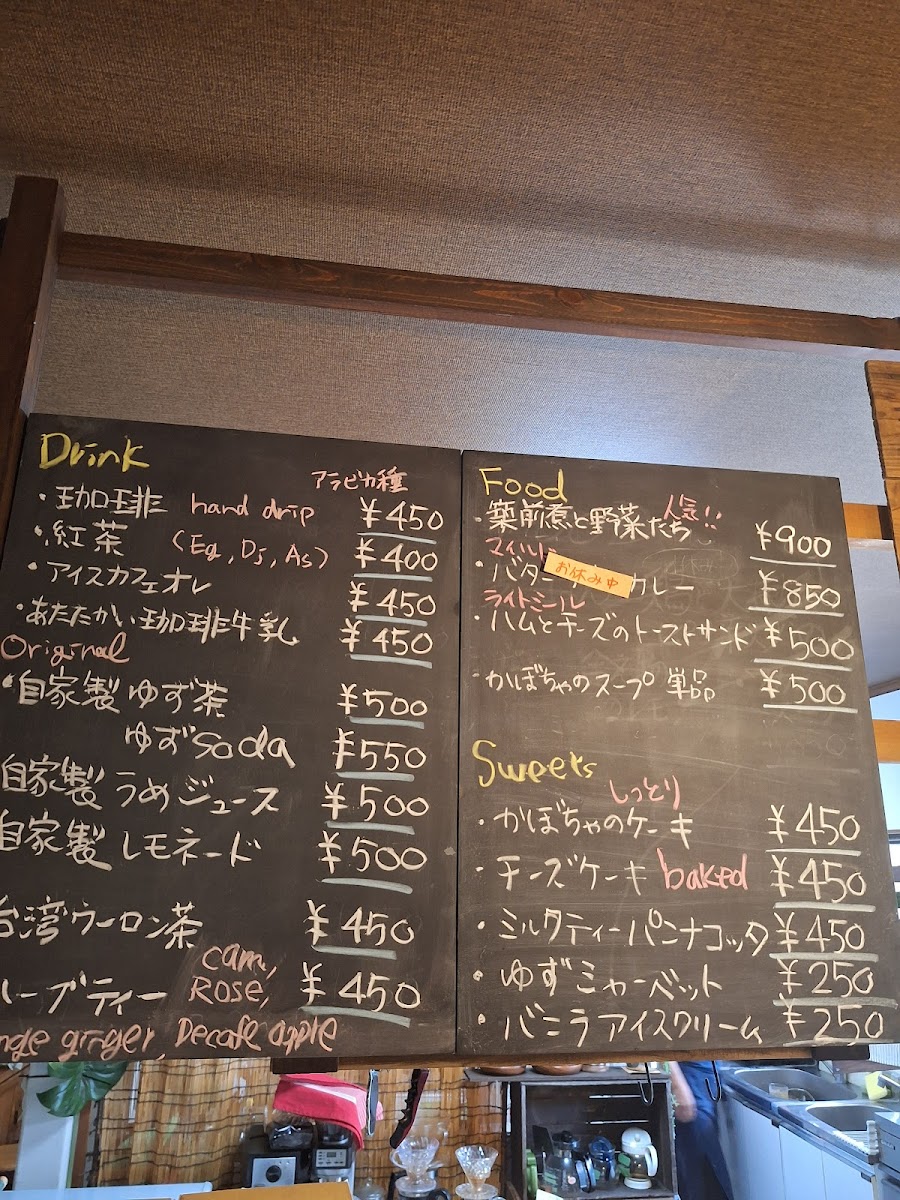 Drink
アラビカ種
・珈琲 hand drip ¥450
・紅茶 (Eg, Dj, As) ¥400
・アイスカフェオレ ¥450
・あたたかい珈琲牛乳 ¥450
Original
・自家製ゆず茶 ¥500
ゆずsoda ¥550
自家製うめジュース ¥500
自家製レモネード ¥500
台湾ウーロン茶 ¥450
ハーブティー cam, Rose, ¥450
ginger, Decafe apple
Food
人気!!
・築前煮と野菜たち ¥900
マイルド
・バタ お休み中 カレー ¥850
ライトミール
・ハムとチーズのトーストサンド ¥500
・かぼちゃのスープ 単品 ¥500
Sweets
しっとり
・かぼちゃのケーキ ¥450
・チーズケーキ baked ¥450
・ミルクティーパンナコッタ ¥450
・ゆずシャーベット ¥250
・バニラアイスクリーム ¥250